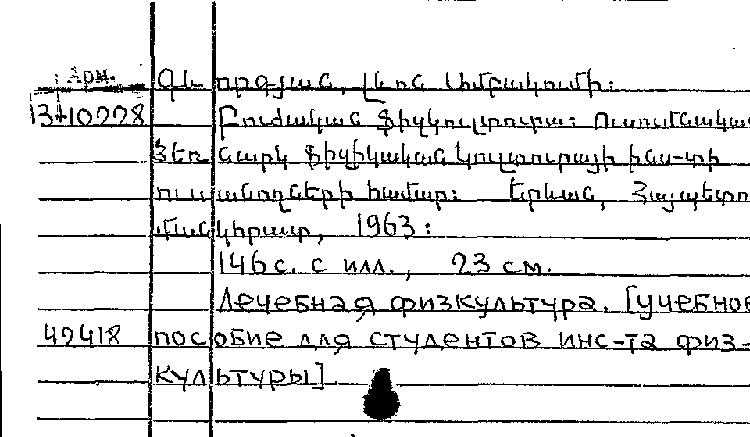 Арм.
Գևորգյան, Լևոն
13+10228 Բուժական ֆիզկուլտուրա: Ուսումնական
ձեռնարկ ֆիզիկական կուլտուրայի ինս-տի
ուսանողների համար: Երևան, Հայպետու
մանկհրատ, 1963:
146 с. с илл., 23 см.
Лечебная физкультура. [учебное
42418 пособие для студентов инс-та физ-
культуры]